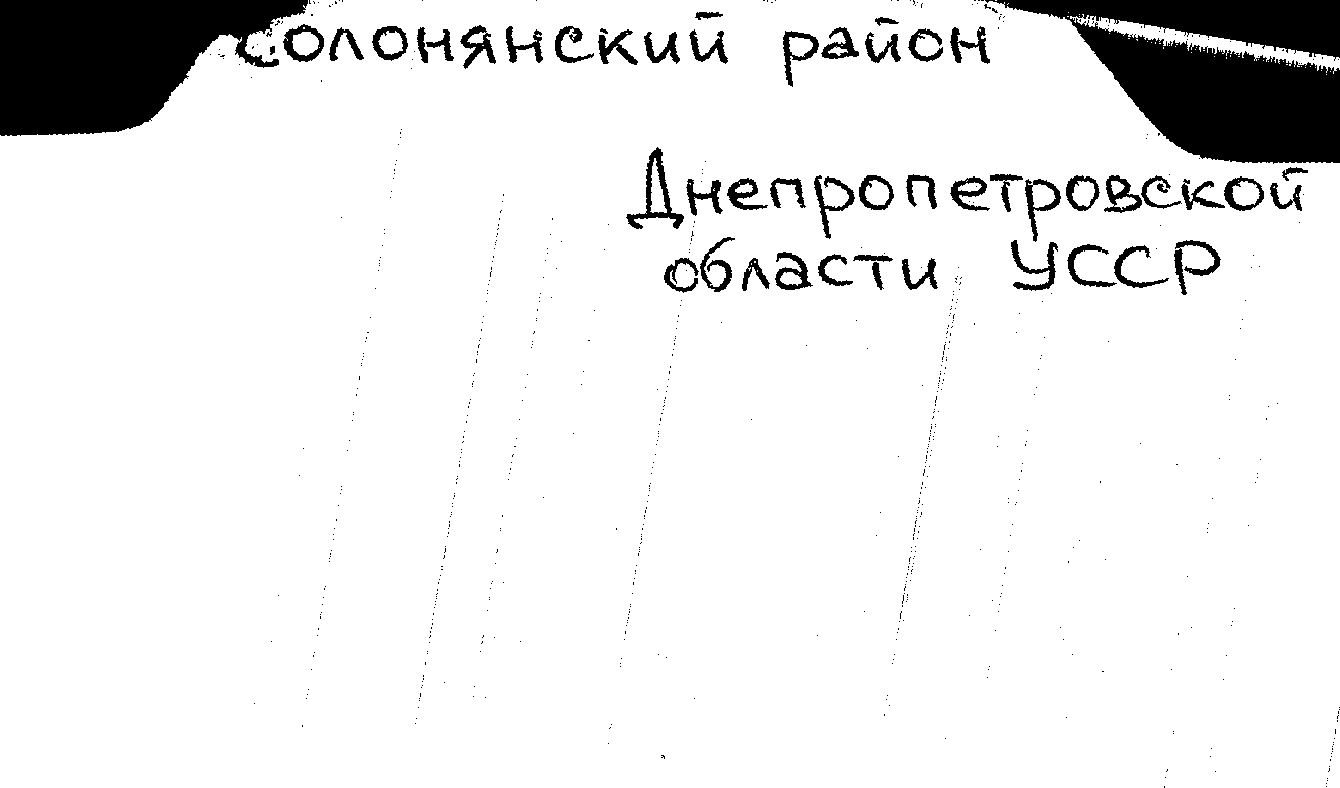 Солонянский район
Днепропетровской
области УССР